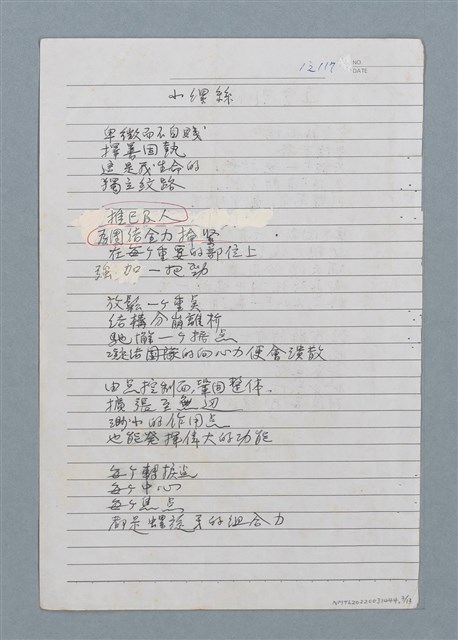 12117
NO.
DATE
小螺絲
卑微而不自賤
擇善固執
這是我生命的
獨立紋路
推己及人
為團結合力擰緊
在每个重要的部位上
強加一把勁
放鬆一个重点
結構分崩離析
馳懈一个據点
凝결團隊的向心力便會潰散
由点控制面,鞏固整体.
擴張至無边
渺小的作用点
也能發揮偉大的功能
每个轉捩点
每个中心
每个焦点
都是螺絲牙的組合力